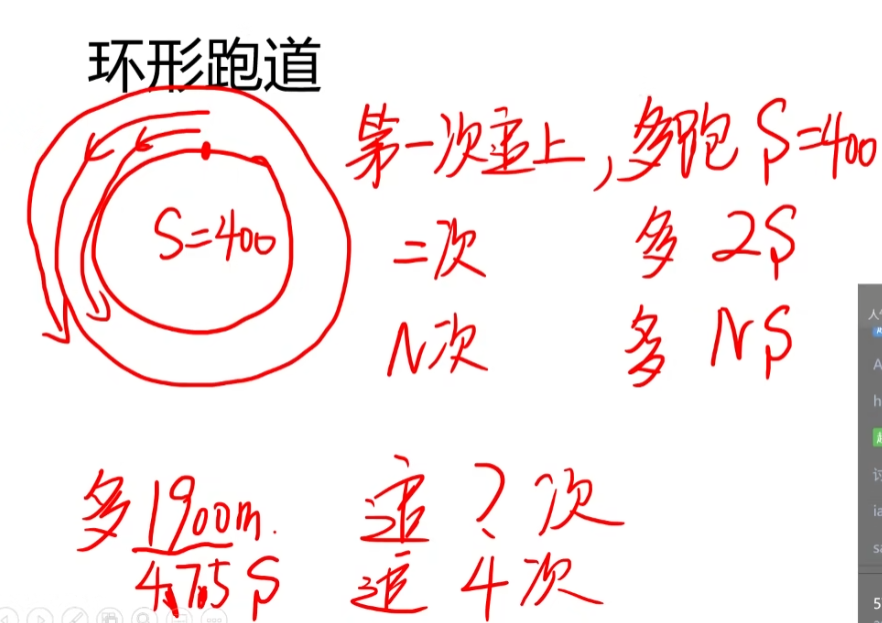 环形跑道
S=400
第一次追上，多跑 S=400
二次 多 2S
N次 多 NS
多1900m. 追？次
4.75S 追4次
人
A
h
ia
sa
5